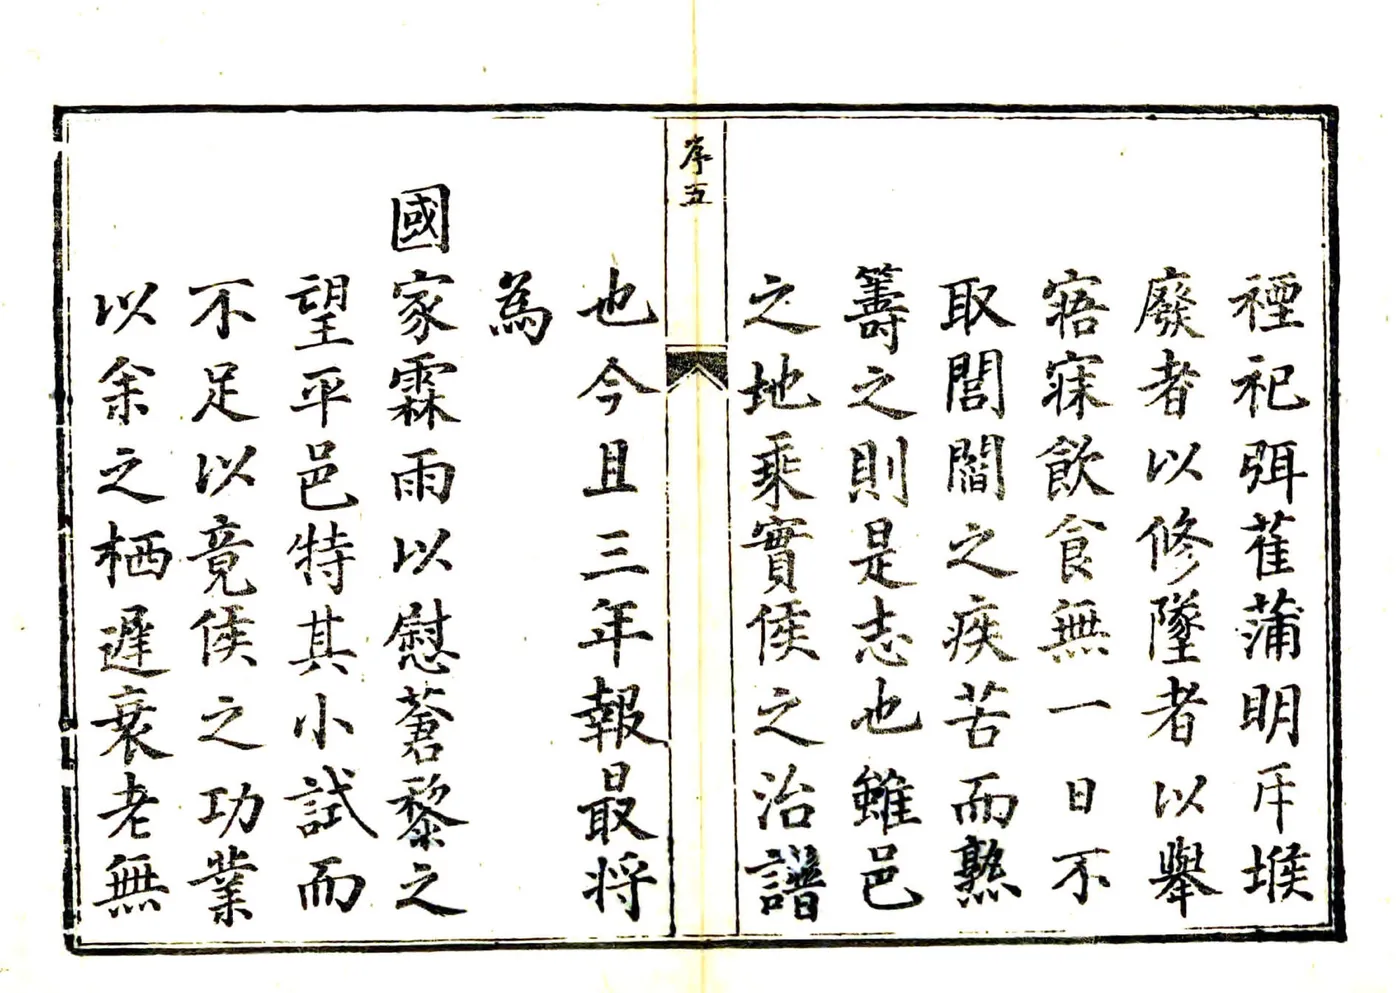 禋祀弭萑蒲明斥堠
廢者以修墜者以舉
寤寐飲食無一日不
取閭閻之疾苦而熟
籌之則是志也雖邑
之地乘實侯之治譜
序五
也今且三年報最將
為
國家霖雨以慰蒼黎之
望平邑特其小試而
不足以竟侯之功業
以余之栖遲衰老無